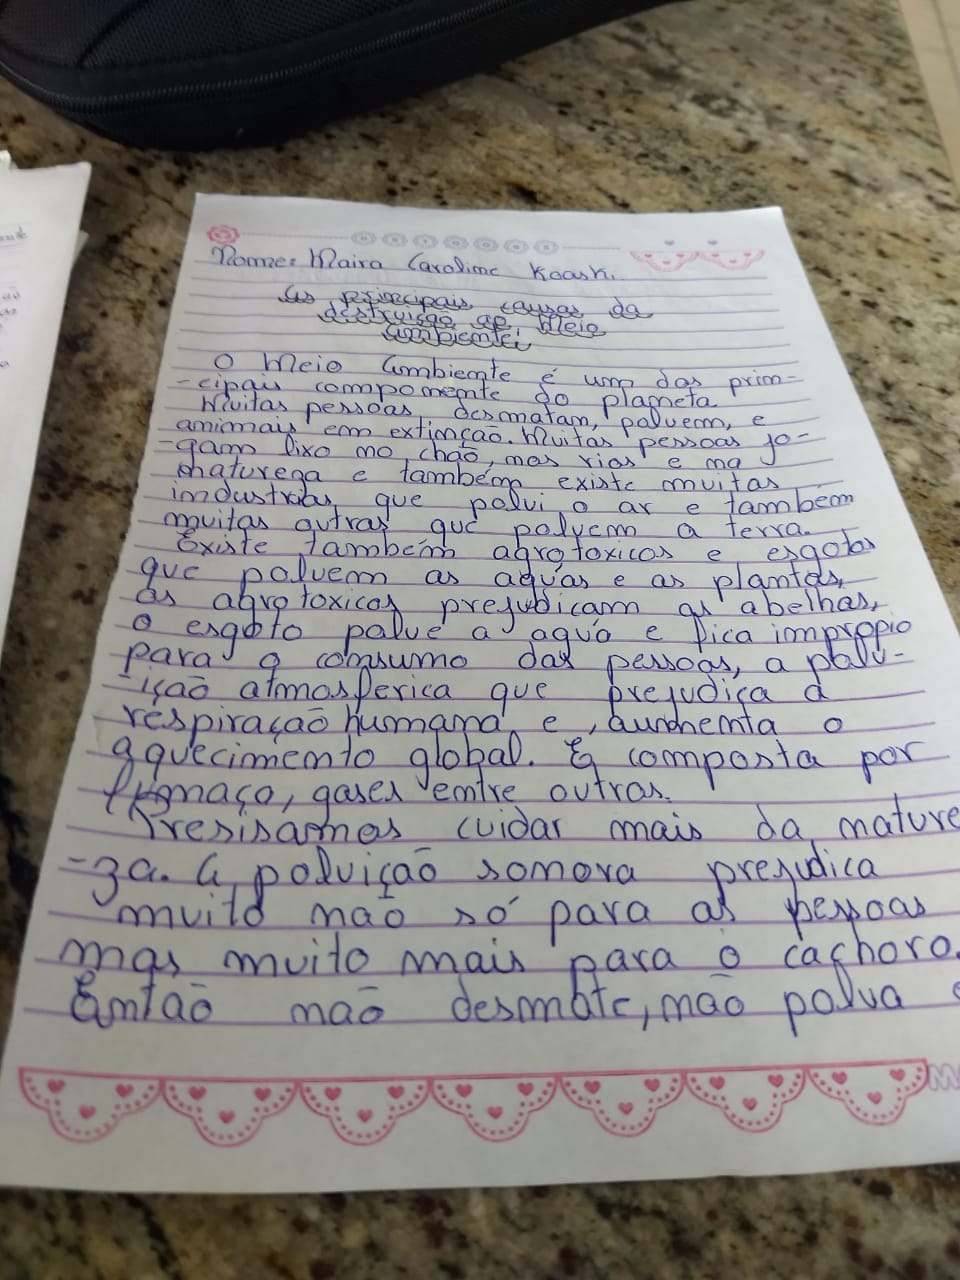 Nome: Maira Caroline Koaski.
As principais causas da
destruição ao Meio
Ambiente;
O Meio Ambiente é um das prin-
-cipais componente do planeta
Muitas pessoas desmatam, poluem, e
animais em extinção. Muitas pessoas jo-
-gam lixo no chão, nos rios e na
natureza e também existe muitas
industrias que polui o ar e também
muitas outras que poluem a terra.
Existe também agrotoxicos e esgotos
que poluem as aguás e as plantas,
os agrotoxicos prejudicam as abelhas,
o esgoto polue a aguá e fica impropio
para o consumo das pessoas, a polu-
-ição atmosferica que prejudica a
respiração humana e, aunmenta o
aquecimento global. É composta por
fumaça, gases entre outras.
Presisamos cuidar mais da nature
-za. A poluição sonora prejudica
muito não só para as pessoas
mas muito mais para o cachoro.
Então não desmate, não polua e